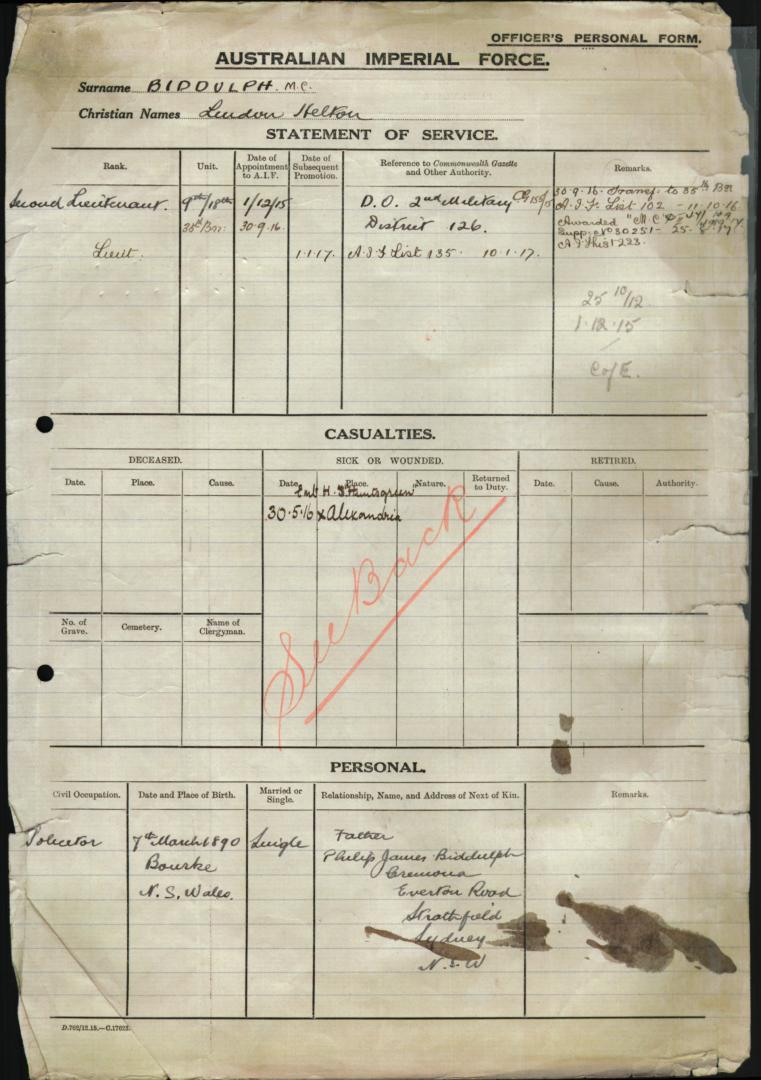 OFFICER'S PERSONAL FORM.
AUSTRALIAN IMPERIAL FORCE.
Surname BIDDULPH. M.C.
Christian Names Lindon Helton
STATEMENT OF SERVICE.
Rank. Unit. Date of Appointment to A.I.F. Date of Subsequent Promotion. Reference to Commonwealth Gazette and Other Authority. Remarks.
Second Lieutenant. 9th/18th 1/12/15 D.O. 2nd Military
35th Bn. 30.9.16. District 126.
Lieut. 1.1.17. A.I.F List 135 10.1.17.
30.9.16. Transf. to 35th Bn
A.I.F. List 102 - 11.10.16
Awarded "M.C."
Supp. No 30251 - 25.8.17
A.I.F. List 223.
25 10/12
1.12.15
C of E.
CASUALTIES.
DECEASED. SICK OR WOUNDED. RETIRED.
Date. Place. Cause. Date. Place. Nature. Returned to Duty. Date. Cause. Authority.
Emb H.T. "Huntsgreen"
30.5.16 Alexandria
See Back
No. of Grave. Cemetery. Name of Clergyman.
PERSONAL.
Civil Occupation. Date and Place of Birth. Married or Single. Relationship, Name, and Address of Next of Kin. Remarks.
Solicitor 7th March 1890 Single Father
Bourke Philip James Biddulph
N.S. Wales. Cremona
Everton Road
Strathfield
Sydney
N.S.W
D.762/12.15.—C.17623.